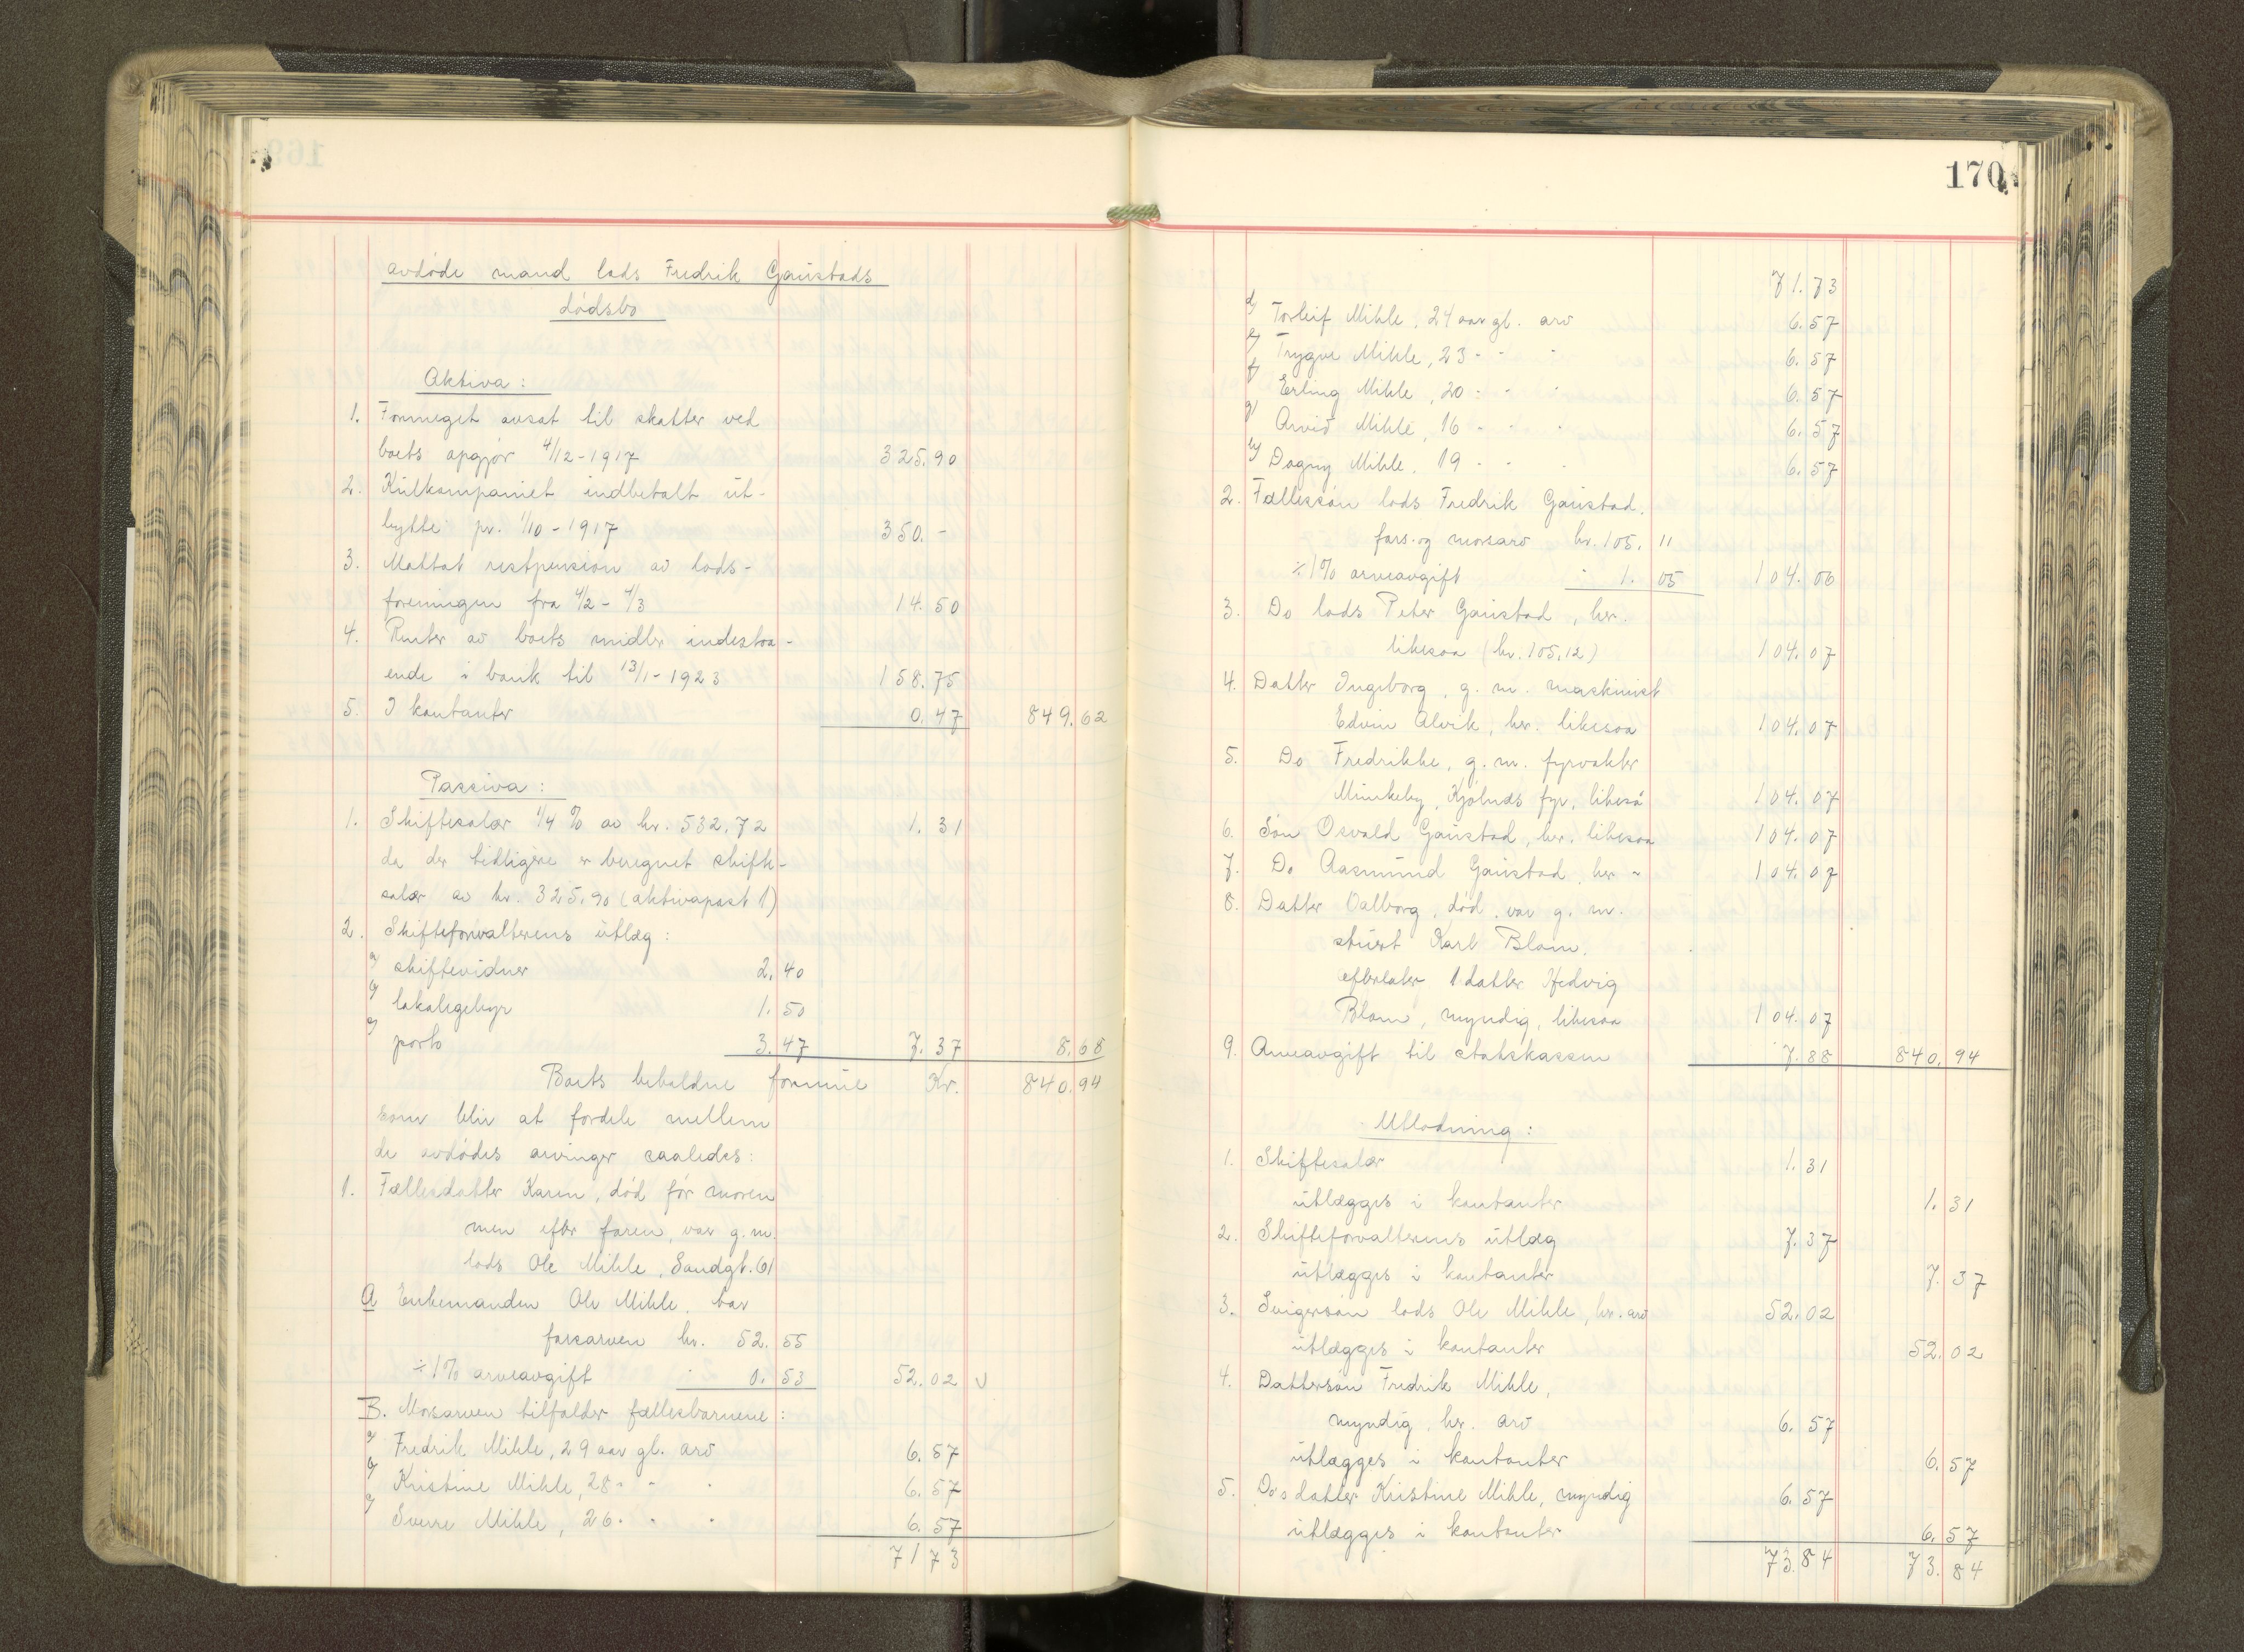 avdöde mand lods Fredrik Gaustads
dödsbo
Aktiva:
1. Formeget avsat til skatter ved
boets opgjör 4/12-1917 325.90
2. Kulkompaniet indbetalt ut-
bytte pr. 1/10-1917 350.-
3. Mottat restpension av lods-
foreningen fra 4/2-4/3 14.50
4. Renter av boets midler indestaa-
ende i bank til 13/1-1923 158.75
5. I kontanter 0.47 849.62
Passiva:
1. Skiftesalær 1/4 % av kr. 532.72 1.31
da der tidligere er beregnet skifte-
salær av kr. 325.90 (aktivapost 1)
2. Skifteforvalterens utlæg:
a) skiftevidner 2.40
b) lokalegebyr 1.50
c) porto 3.47 7.37 8.68
Boets beholdne formue Kr. 840.94
som blir at fordele mellem
de avdödes arvinger saaledes:
1. Fællesdatter Karen, död för moren
men efter faren, var g.m.
lods Ole Mihle, Sandgt. 61
A Enkemanden Ole Mihle, tar
farsarven kr. 52.55
÷1% arveavgift " 0.53 52.02 v
B. Morsarven tilfalder fællesbarnene:
a) Fredrik Mihle, 29 aar gl. arv 6.57
b) Kristine Mihle, 28 " " " 6.57
c) Sverre Mihle, 26 " " " 6.57
71 73
170
71.73
d) Torleif Mihle, 24 aar gl. arv 6.57
e) Trygve Mihle, 23 " " " 6.57
f) Erling Mihle, 20 " " " 6.57
g) Arvid Mihle, 16 " " " 6.57
h) Dagny Mihle, 19 " " " 6.57
2. Fællessön lods Fredrik Gaustad,
fars- og morsarv kr. 105.11
÷1% arveavgift " 1.05 104.06
3. Do lods Peter Gaustad, her.
likesaa (kr. 105.12) 104.07
4. Datter Ingeborg, g.m. maskinist
Edvin Alvik, her. likesaa 104.07
5. Do Fredrikke, g.m. fyrvokter
Minkeby, Kjölnes fyr, likeså 104.07
6. Sön Osvald Gaustad, her. likesaa 104.07
7. Do Aasmund Gaustad, her " 104.07
8. Datter Valborg, död, var g.m.
stuert Karl Blom.
efterlater 1 datter Hedvig
Blom, myndig, likesaa 104.07
9. Arveavgift til statskassen 7.88 840.94
Utlodning:
1. Skiftesalær 1.31
utlægges i kontanter 1.31
2. Skifteforvalterens utlæg 7.37
utlægges i kontanter 7.37
3. Svigersön lods Ole Mihle, her. arv 52.02
utlægges i kontanter 52.02
4. Dattersön Fredrik Mihle,
myndig, her. arv 6.57
utlægges i kontanter 6.57
5. Do's datter Kristine Mihle, myndig 6.57
utlægges i kontanter 6.57
73.84 73.84